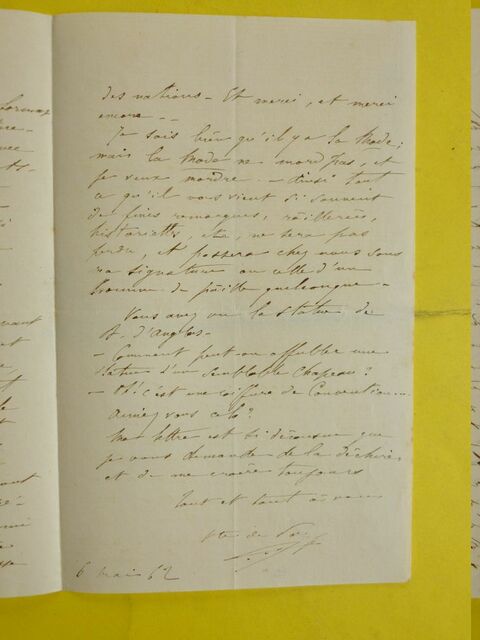 des nations – Et merci, et merci
encore – –
Je sais bien qu'il y a la Mode;
mais la Mode ne mord pas, et
je veux mordre – ainsi tout
ce qu'il vous vient si souvent
de fines remarques, railleries,
historiettes, etc, ne sera pas
perdu, et passera chez nous sous
sa signature ou celle d'un
homme de paille quelconque –
Vous avez vu la statue de
d'Angles –
– Comment peut-on affubler une
statue d'un semblable chapeau?
– Ah! c'est une coiffure de Convention...
Aimez vous cela?
Ma lettre est si décousue que
je vous demande de la déchirer,
et de me croire toujours
tout et tout à vous
Vte de
6 mai 62